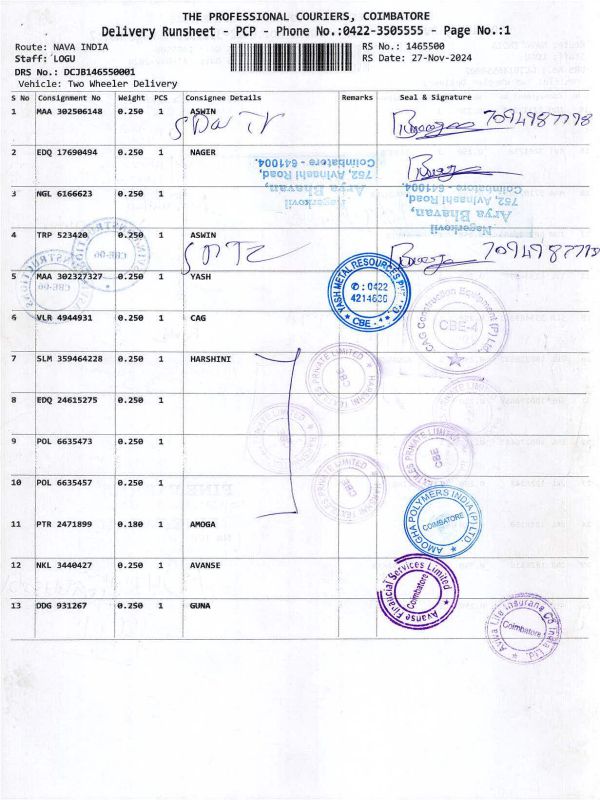 THE PROFESSIONAL COURIERS, COIMBATORE
Delivery Runsheet - PCP - Phone No.:0422-3505555 - Page No.:1
Route: NAVA INDIA RS No.: 1465500
Staff: LOGU RS Date: 27-Nov-2024
DRS No.: DCJB146550001
Vehicle: Two Wheeler Delivery
S No Consignment No Weight PCS Consignee Details Remarks Seal & Signature
1 MAA 302506148 0.250 1 ASWIN
2 EDQ 17690494 0.250 1 NAGER
Nagerkovil
Arya Bhavan,
752, Avinashi Road,
Coimbatore - 641004.
Nagerkovil
Arya Bhavan,
752, Avinashi Road,
Coimbatore - 641004.
3 NGL 6166623 0.250 1
4 TRP 523420 0.250 1 ASWIN
5 MAA 302327327 0.250 1 YASH
YASH METAL RESOURCES
✆ : 0422
CBE - 4
6 VLR 4944931 0.250 1 CAG
CAG Construction Equipment (P) Ltd.,
CBE-4
7 SLM 359464228 0.250 1 HARSHINI
PRIVATE LIMITED
CBE
8 EDQ 24615275 0.250 1
9 POL 6635473 0.250 1
PRIVATE LIMITED
CBE
10 POL 6635457 0.250 1
CBE
11 PTR 2471899 0.180 1 AMOGA
AMOGHA POLYMERS INDIA (P) LTD.
COIMBATORE
12 NKL 3440427 0.250 1 AVANSE
Avanse Financial Services Limited
Coimbatore
13 DDG 931267 0.250 1 GUNA
Aviva Life Insurance Co India Ltd.
Coimbatore